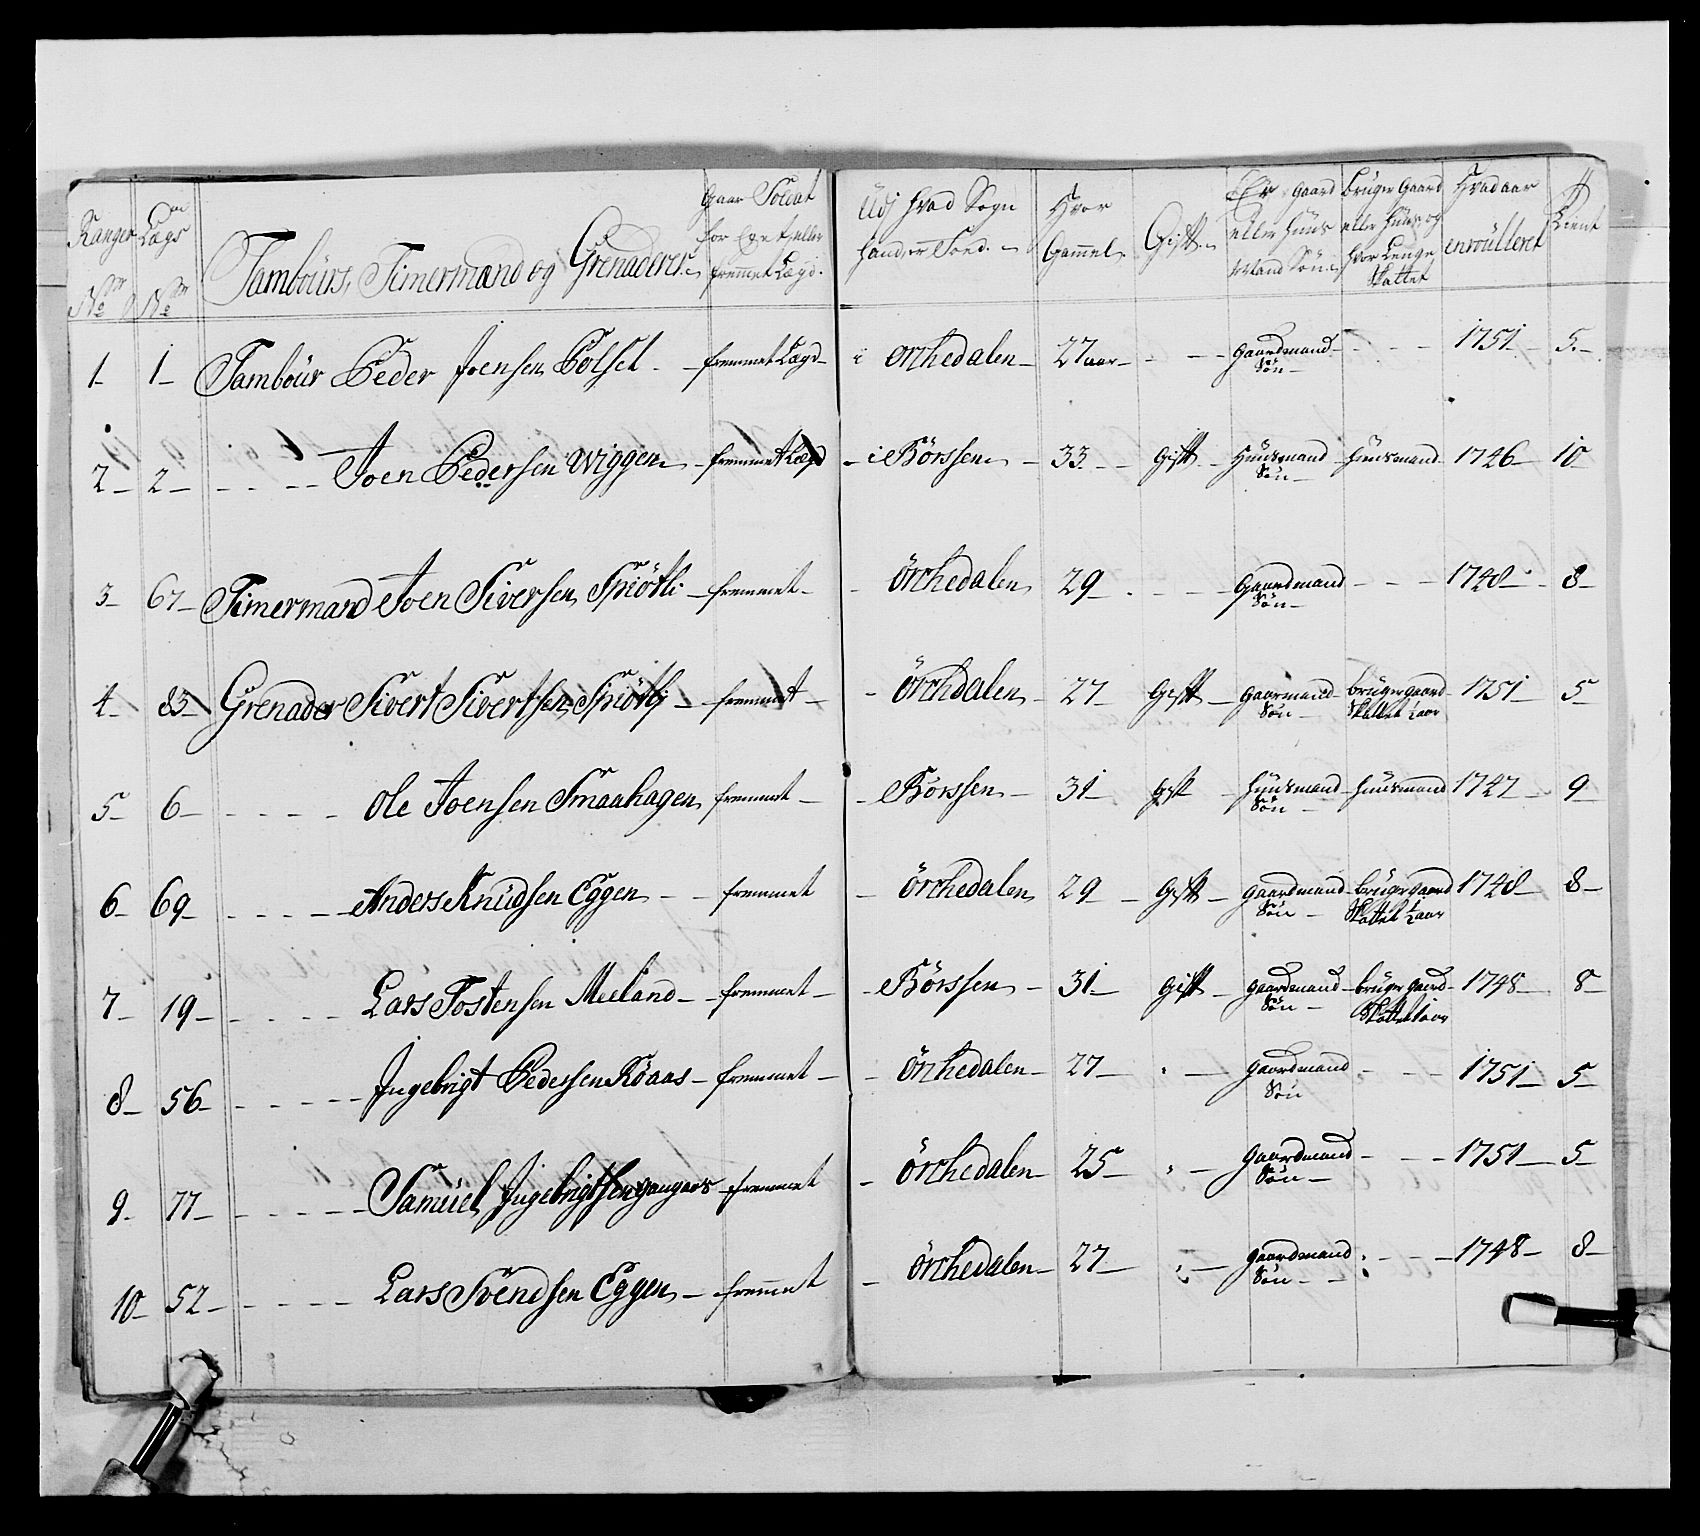 Ranger No
Lægs No
Tambours, Timermand og Grenaderer
Gaar Soldat for Eget eller fremmet Lægd
Udj hvad Sogn hand er Föed
Hvor Gammel
Gift
Er Gaard eller Huus Mand Søn
bruger Gaard eller Huus og hvor Lenge Skattet
Hvad aar enroulleret
Tient
1 1 Tambour Peder Joensen Solset fremmet Lægd i orchedalen 27 aar Gaardmand Søn 1751 5
2 2 Joen Pedersen Wiggen fremmet Lægd i Börssen 33 Gift Huusmand Søn Huusmand 1746 10
3 67 Timermand Joen Siversen Sniötli fremmet Örchedalen 29 Gaardmand Søn 1748 8
4 83 Grenader Sivert Sivertsen Sniötli fremmet Örchdalen 27 Gift Gaarmand Søn bruger gaard Skattet ½ aar 1751 5
5 6 Ole Joensen Smaahagen fremmet Börssen 31 Gift Huusmand Søn Huusmand 1747 9
6 69 Anders Knudsen Eggen fremmet Örchedalen 29 Gift Gaardmand Søn bruger gaard Skattet ½ aar 1748 8
7 19 Lars Tostensen Meeland fremmet Börssen 31 Gift gaardmand Søn bruger gaard Skattet 1 aar 1748 8
8 56 Ingebrigt Pedersen Roaas fremmet Örchedalen 27 Gaardmand Søn 1751 5
9 77 Samuel Ingebrigtsen fremmet Örchedalen 25 Gaardmand Søn 1751 5
10 52 Lars Svendsen Eggen fremmet Örchedalen 27 gaardmand Søn 1748 8